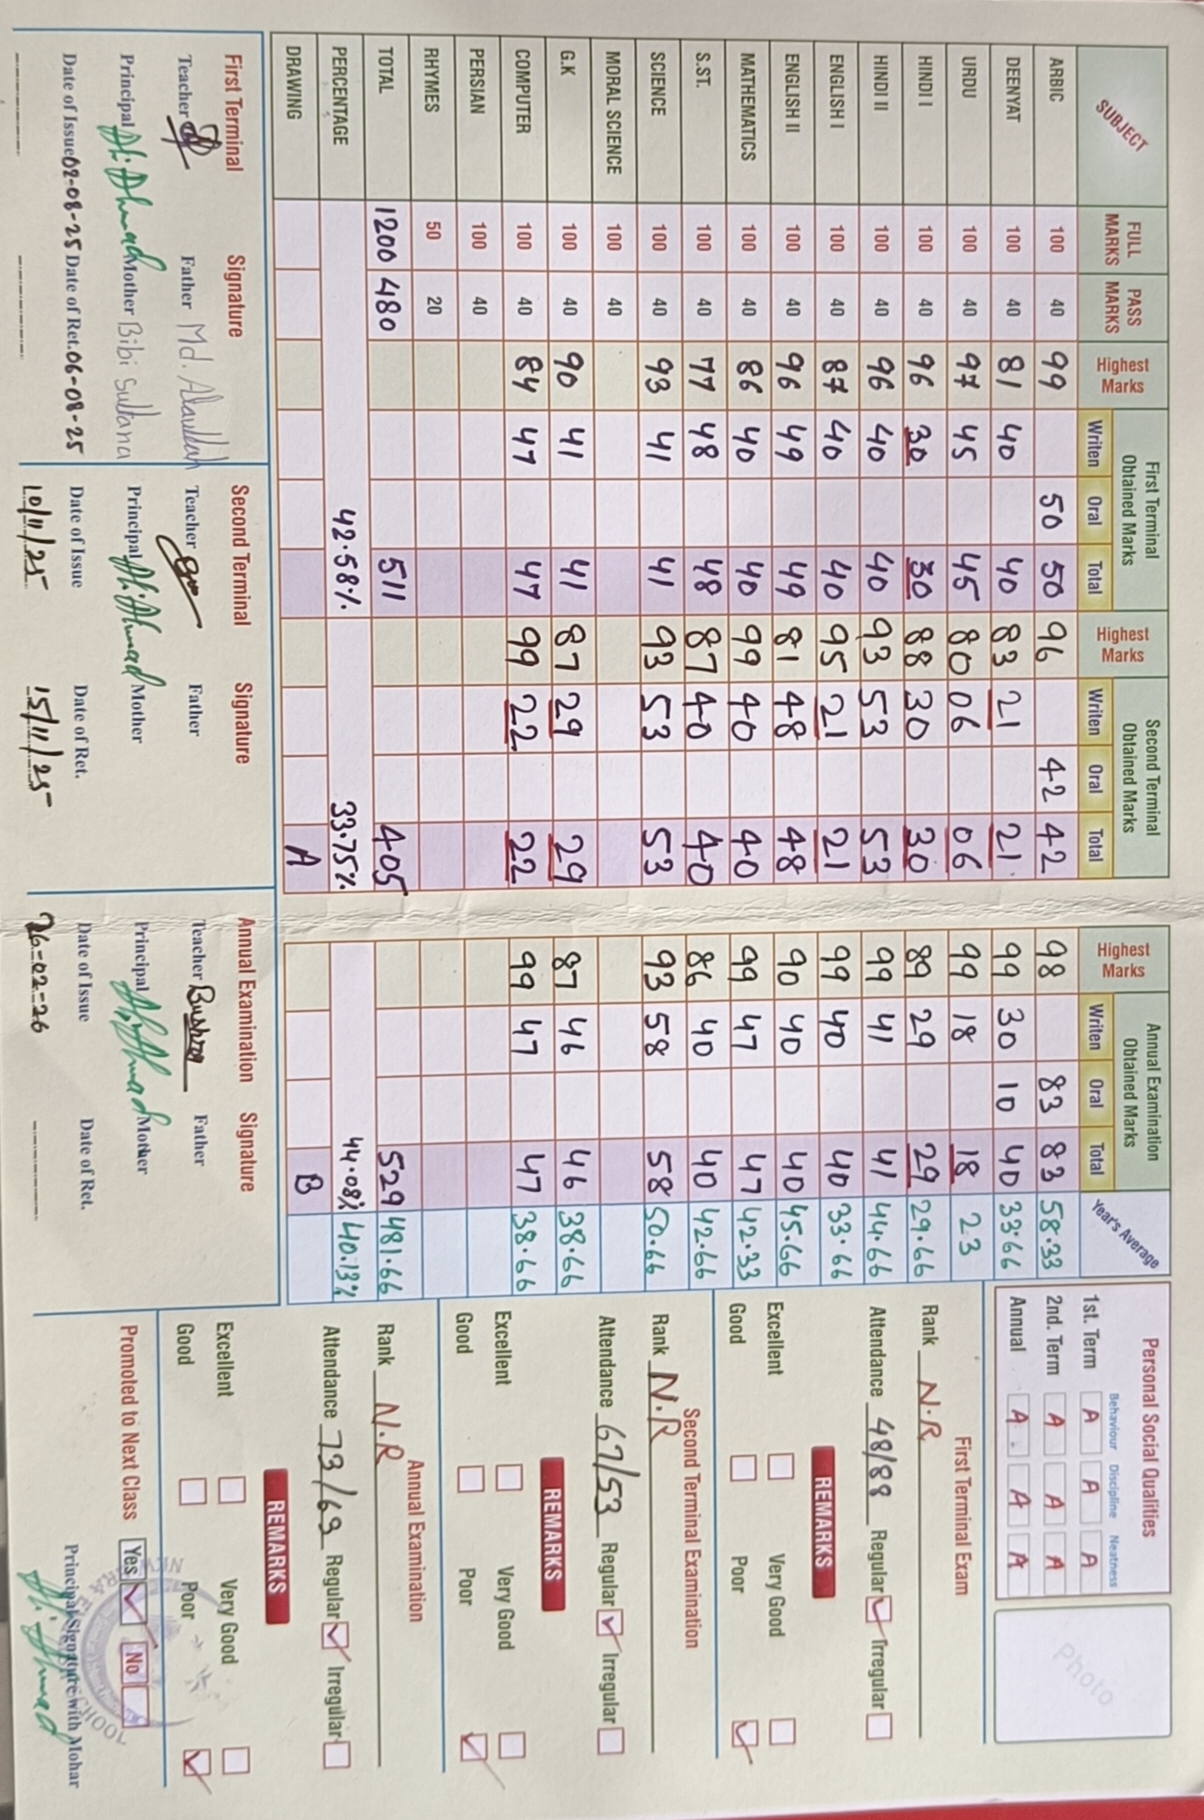 SUBJECT FULL MARKS PASS MARKS Highest Marks First Terminal Obtained Marks Writen Oral Total Highest Marks Second Terminal Obtained Marks Writen Oral Total Highest Marks Annual Examination Obtained Marks Writen Oral Total Year's Average
ARBIC 100 40 99 50 50 96 42 42 98 83 83 58.33
DEENYAT 100 40 81 40 40 83 21 21 99 30 10 40 33.66
URDU 100 40 97 45 45 80 06 06 99 18 18 23
HINDI I 100 40 96 30 30 88 30 30 89 29 29 29.66
HINDI II 100 40 96 40 40 93 53 53 99 41 41 44.66
ENGLISH I 100 40 87 40 40 95 21 21 99 40 40 33.66
ENGLISH II 100 40 96 49 49 81 48 48 90 40 40 45.66
MATHEMATICS 100 40 86 40 40 99 40 40 99 47 47 42.33
S.ST. 100 40 77 48 48 87 40 40 86 40 40 42.66
SCIENCE 100 40 93 41 41 93 53 53 93 58 58 50.66
MORAL SCIENCE 100 40
G.K 100 40 90 41 41 87 29 29 87 46 46 38.66
COMPUTER 100 40 84 47 47 99 22 22 99 47 47 38.66
PERSIAN 100 40
RHYMES 50 20
TOTAL 1200 480 511 405 529 481.66
PERCENTAGE 42.58% 33.75% 44.08% 40.13%
DRAWING A B
First Terminal Signature
Teacher Father Md. Alauddah
Principal Ali Ahmad Mother Bibi Sultana
Date of Issue 02-08-25 Date of Ret. 06-08-25
Second Terminal Signature
Teacher Father
Principal Ali Ahmad Mother
Date of Issue Date of Ret.
10/11/25 15/11/25
Annual Examination Signature
Teacher Bushra Father
Principal Ali Ahmad Mother
Date of Issue Date of Ret.
26-02-26
Personal Social Qualities
Behaviour Discipline Neatness
1st. Term A A A
2nd. Term A A A
Annual A A A
Photo
First Terminal Exam
Rank N.R
Attendance 48/88 Regular Irregular
REMARKS
Excellent Very Good
Good Poor
Second Terminal Examination
Rank N.R
Attendance 67/53 Regular Irregular
REMARKS
Excellent Very Good
Good Poor
Annual Examination
Rank N.R
Attendance 73/69 Regular Irregular
REMARKS
Excellent Very Good
Good Poor
Promoted to Next Class Yes No
Principal Signature with Mohar
Ali Ahmad